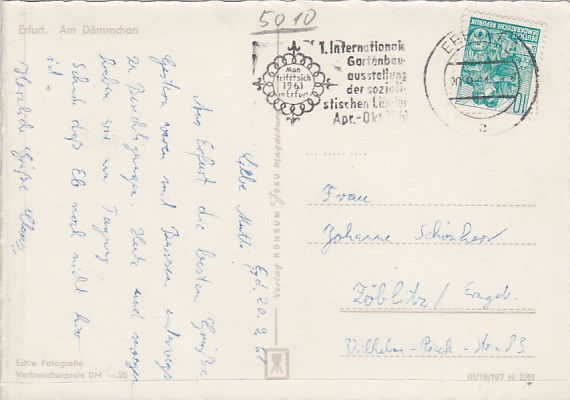 5010
Erfurt. Am Dämmchen
1. Internationale
Gartenbau-
ausstellung
der soziali-
stischen Länder
Apr.-Okt. 1961
Man
trifft sich
1961
in Erfurt
ERFURT
20.9.61
a
DEUTSCHE
DEMOKRATISCHE REPUBLIK
10
Liebe Mutti! Erf. 20. 9. 61
Aus Erfurt die besten Grüße.
Gestern waren mit Bussen unterwegs
zu Besichtigungen. Heute und morgen
haben wir nur Tagung.
Schade daß Eb noch nicht hier
ist.
Herzliche Grüße
Frau
Johanne Schönherr
Zöblitz/ Erzgeb.
Wilhelm-Pieck-Str. 83
Echte Fotografie
Verbraucherpreis DM —.25
III/18/197 N 2/61